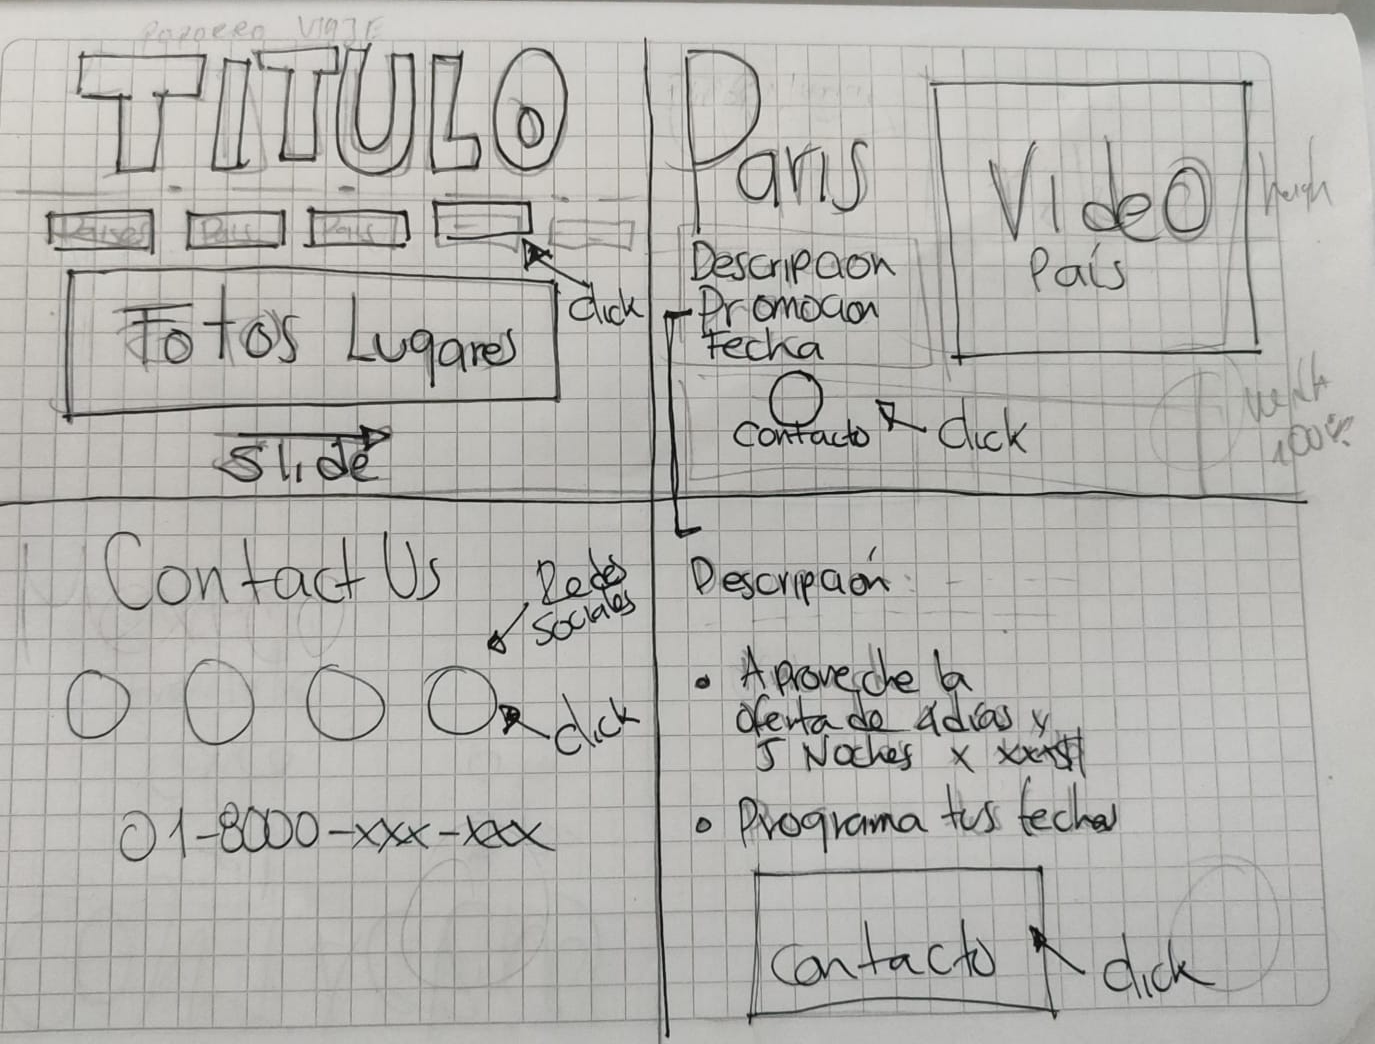 TITULO
Paises País País
click
Fotos Lugares
Slide
Paris
Descripcion
Promocion
Fecha
Contacto
click
Video
País
Contact Us
Redes
Sociales
click
01-8000-xxx-xxx
Descripción:
• Aproveche la
oferta de 4 dias y
5 Noches x xxx$
• Programa tus fechas
Contacto
click